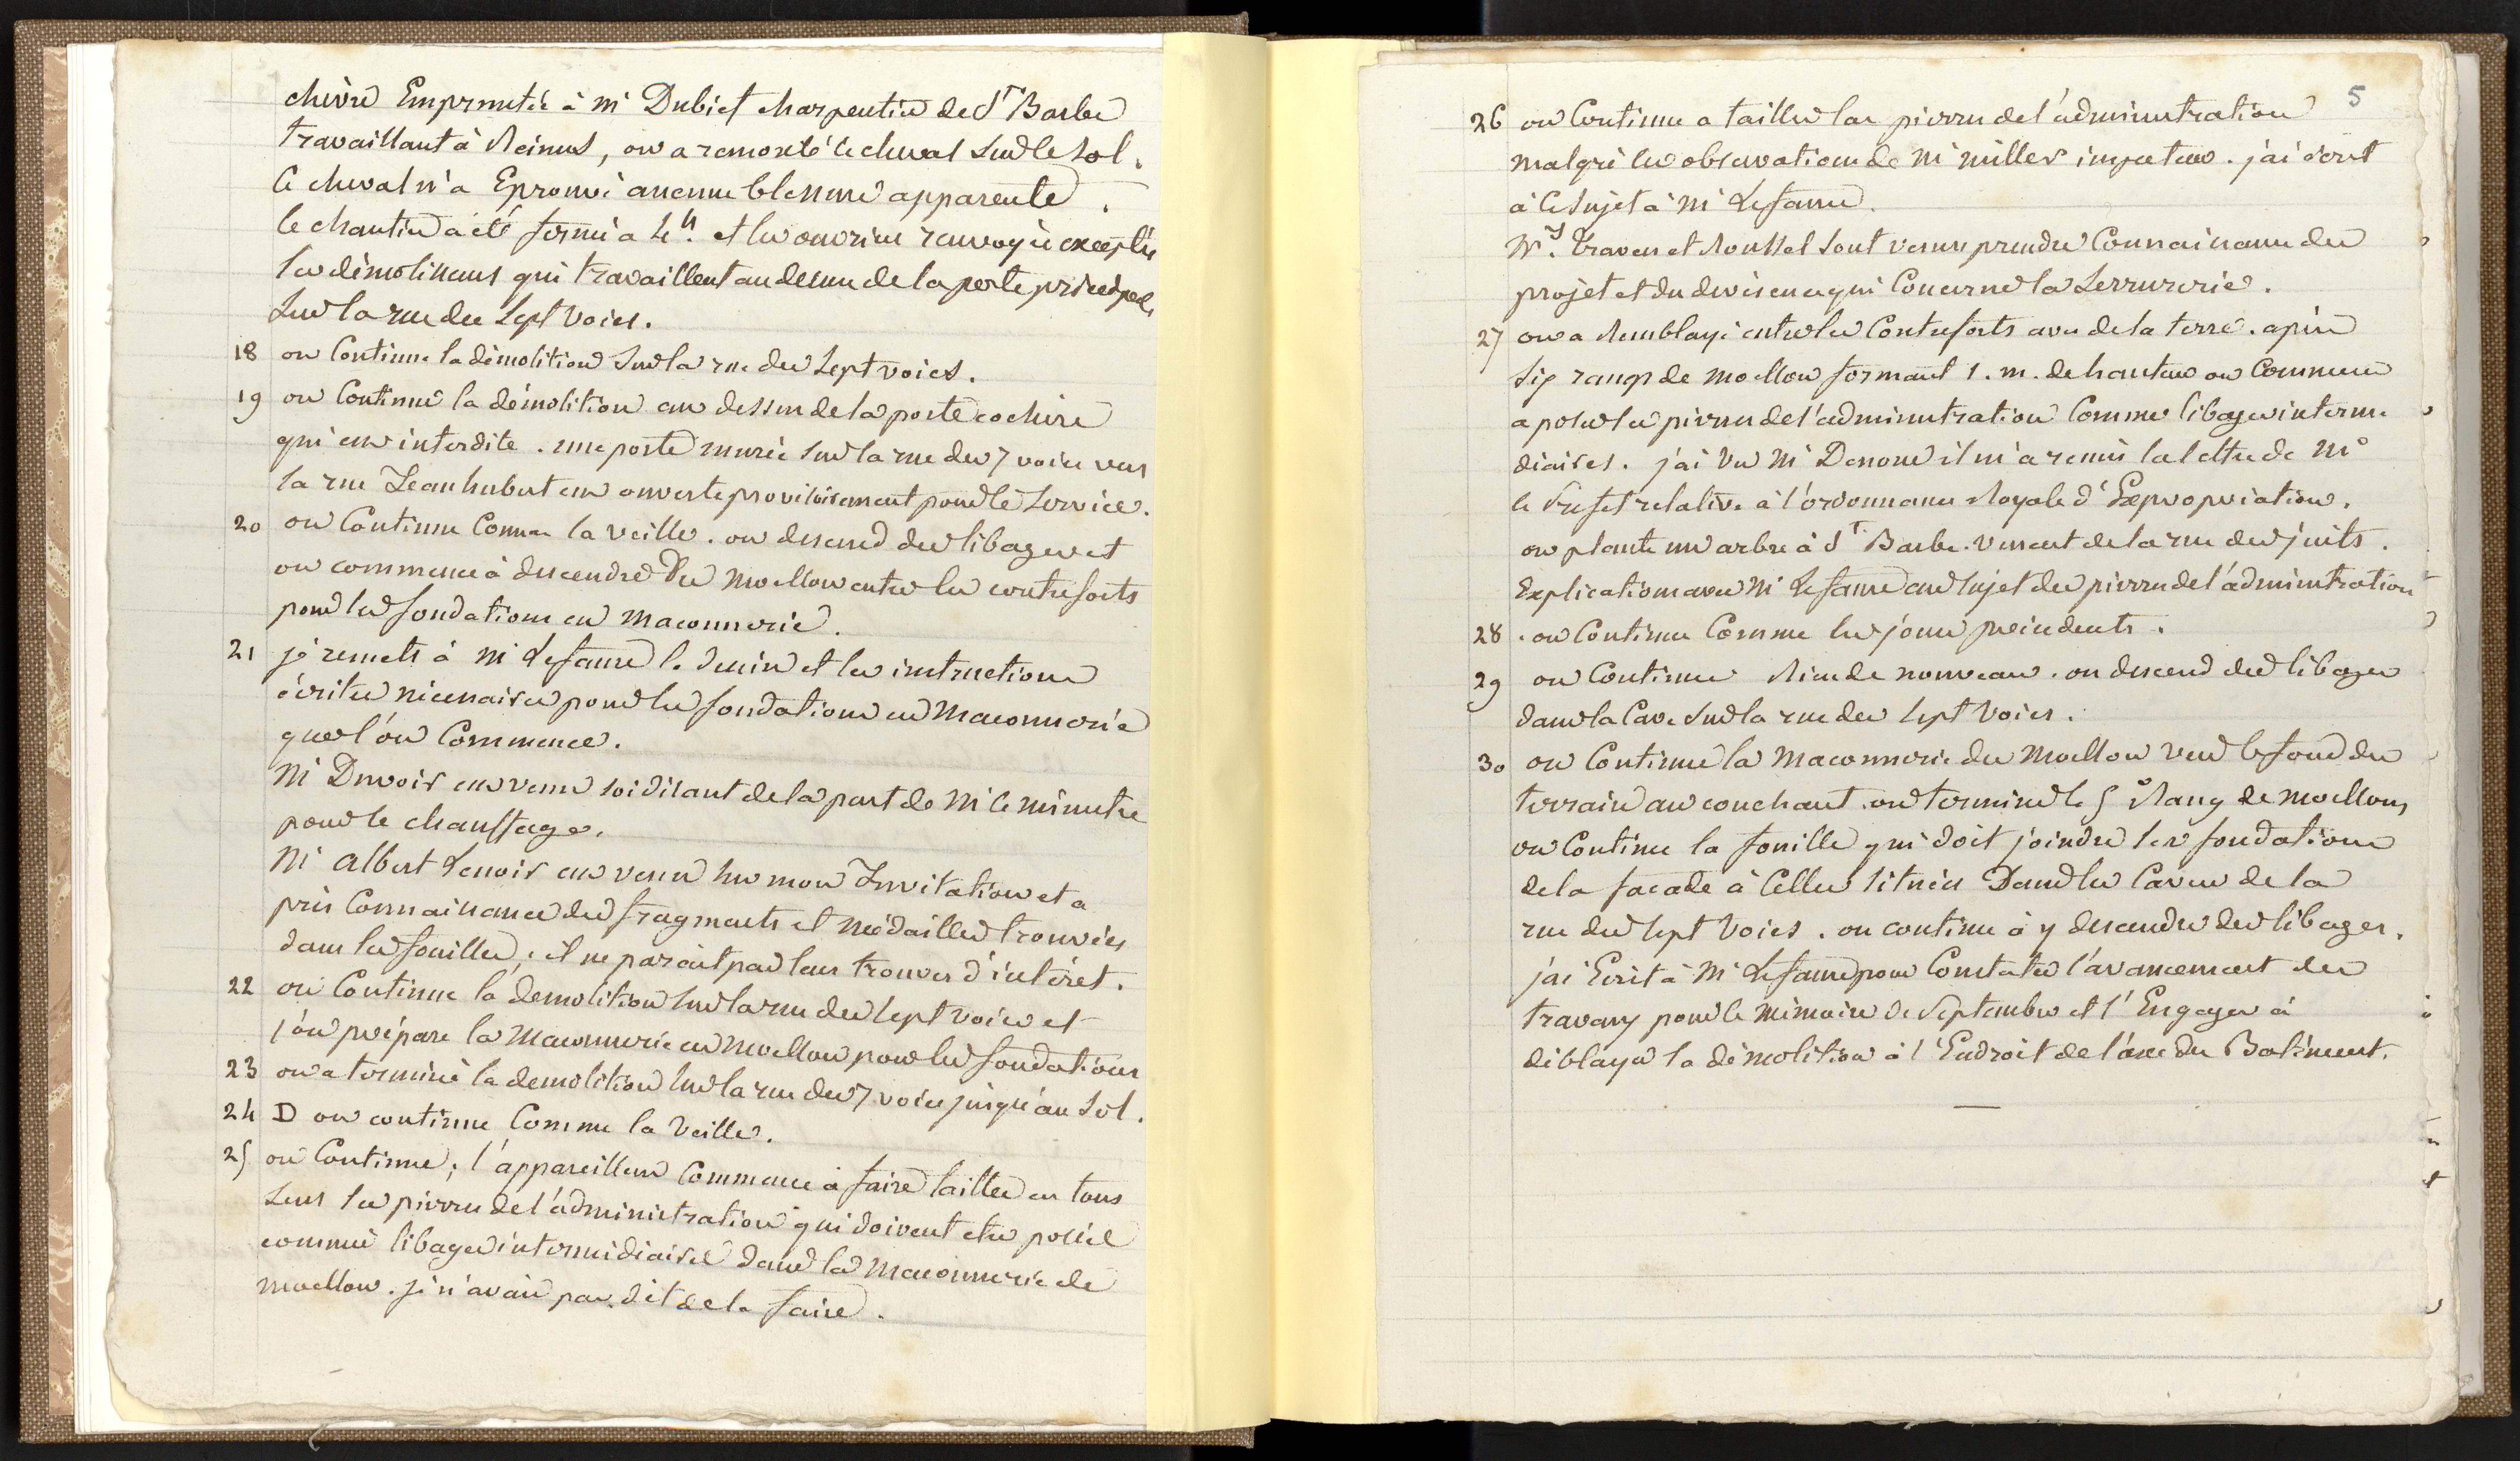 chèvre Empruntée à Mr Dubief charpentier de Ste Barbe
travaillant à Reims, on a remonté le cheval sur le sol.
le cheval n'a Eprouvé aucune blessure apparente.
le chantier a été fermé a 4h. et les ouvriers renvoyés exceptés
les démolisseurs qui travaillent au dessus de la porte principale
sur la rue des Sept voies.
18 on Continue la démolition sur la rue des Sept voies.
19 on Continue la démolition au dessus de la porte cochère
qui est interdite. une porte murée sur la rue des 7 voies vers
la rue Jean hubert est ouverte provisoirement pour le service.
20 on Continue Comme la veille. on descend des libages et
on commence à descendre Du Moellon entre les contreforts
pour les fondations en maconnerie.
21 je remets à Mr Lefaure le dessin et les instructions
écrites nécessaires pour les fondations en Maconnerie
que l'on Commence.
Mr Duvoir est venu soi disant de la part de Mr le Ministre
pour le chauffage.
Mr Albert Lenoir est venu sur mon Invitation et a
pris Connaissance des fragments et Médailles trouvées
dans les fouilles; il ne parait pas leur trouver d'intéret.
22 on Continue la démolition sur la rue des Sept voies et
l'on prépare la Maconnerie en Moellon pour les fondations
23 on a terminé la demolition sur la rue des 7 voies jusqu'au Sol.
24 D on continue Comme la Veille.
25 on Continue; l'appareilleur Commence à faire tailler en tous
sens les pierres de l'administration qui doivent etre posées
comme libages intermédiaires dans la Maconnerie de
moellon. je n'avais pas dit de le faire.
5
26 on Continue a tailler les pierres de l'administration
malgré les observations de Mr Miller inspecteur. j'ai écrit
à Ce Sujet à Mr Lefaure.
Mrs. Travers et Roussel sont venus prendre Connaissance du
projet et du devis en ce qui Concerne la Serrurerie.
27 on a Remblayé entre les Contreforts avec de la terre. après
six rangs de moellon formant 1. m. de hauteur on Commence
a poser les pierres de l'administration Comme libages interme
diaires. j'ai Vu Mr Denoue il m'a remis la lettre de Mr
le Préfet relative à l'ordonnance Royale d'Expropriation.
on plante un arbre à Ste Barbe. venant de la rue des puits.
Explications avec Mr Lefaure au Sujet des pierres de l'administration
28 . on Continue Comme les jours précédents.
29 on Continue Rien de nouveau. on descend des libages
dans la Cave sur la rue des Sept Voies.
30 on Continue la Maconnerie de Moellon vers le fond du
terrain au couchant. on termine le 5e Rang de moellons
on Continue la fouille qui doit joindre les fondations
de la facade à Celles situées Dans les Caves de la
rue des Sept Voies. on continue à y descendre des libages.
j'ai Ecrit à Mr Lefaure pour Constater l'avancement des
travaux pour le Mémoire de Septembre et l'Engager à
déblayer la démolition à l'Endroit de l'axe du Batiment.